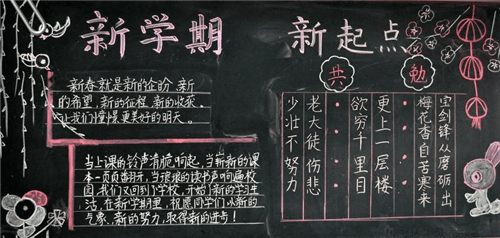 新学期 新起点
新春就是新的企盼、新
的希望,新的征程,新的收获。
让我们憧憬更美好的明天。
当上课的铃声清脆响起,当崭新的课
本一页页翻开,当琅琅的读书声响遍校
园,我们又回到了学校,开始了新的学习生
活,在新学期里,祝愿同学们以新的
气象、新的努力,取得新的进步!
共勉
宝剑锋从磨砺出
梅花香自苦寒来
更上一层楼
欲穷千里目
老大徒伤悲
少壮不努力